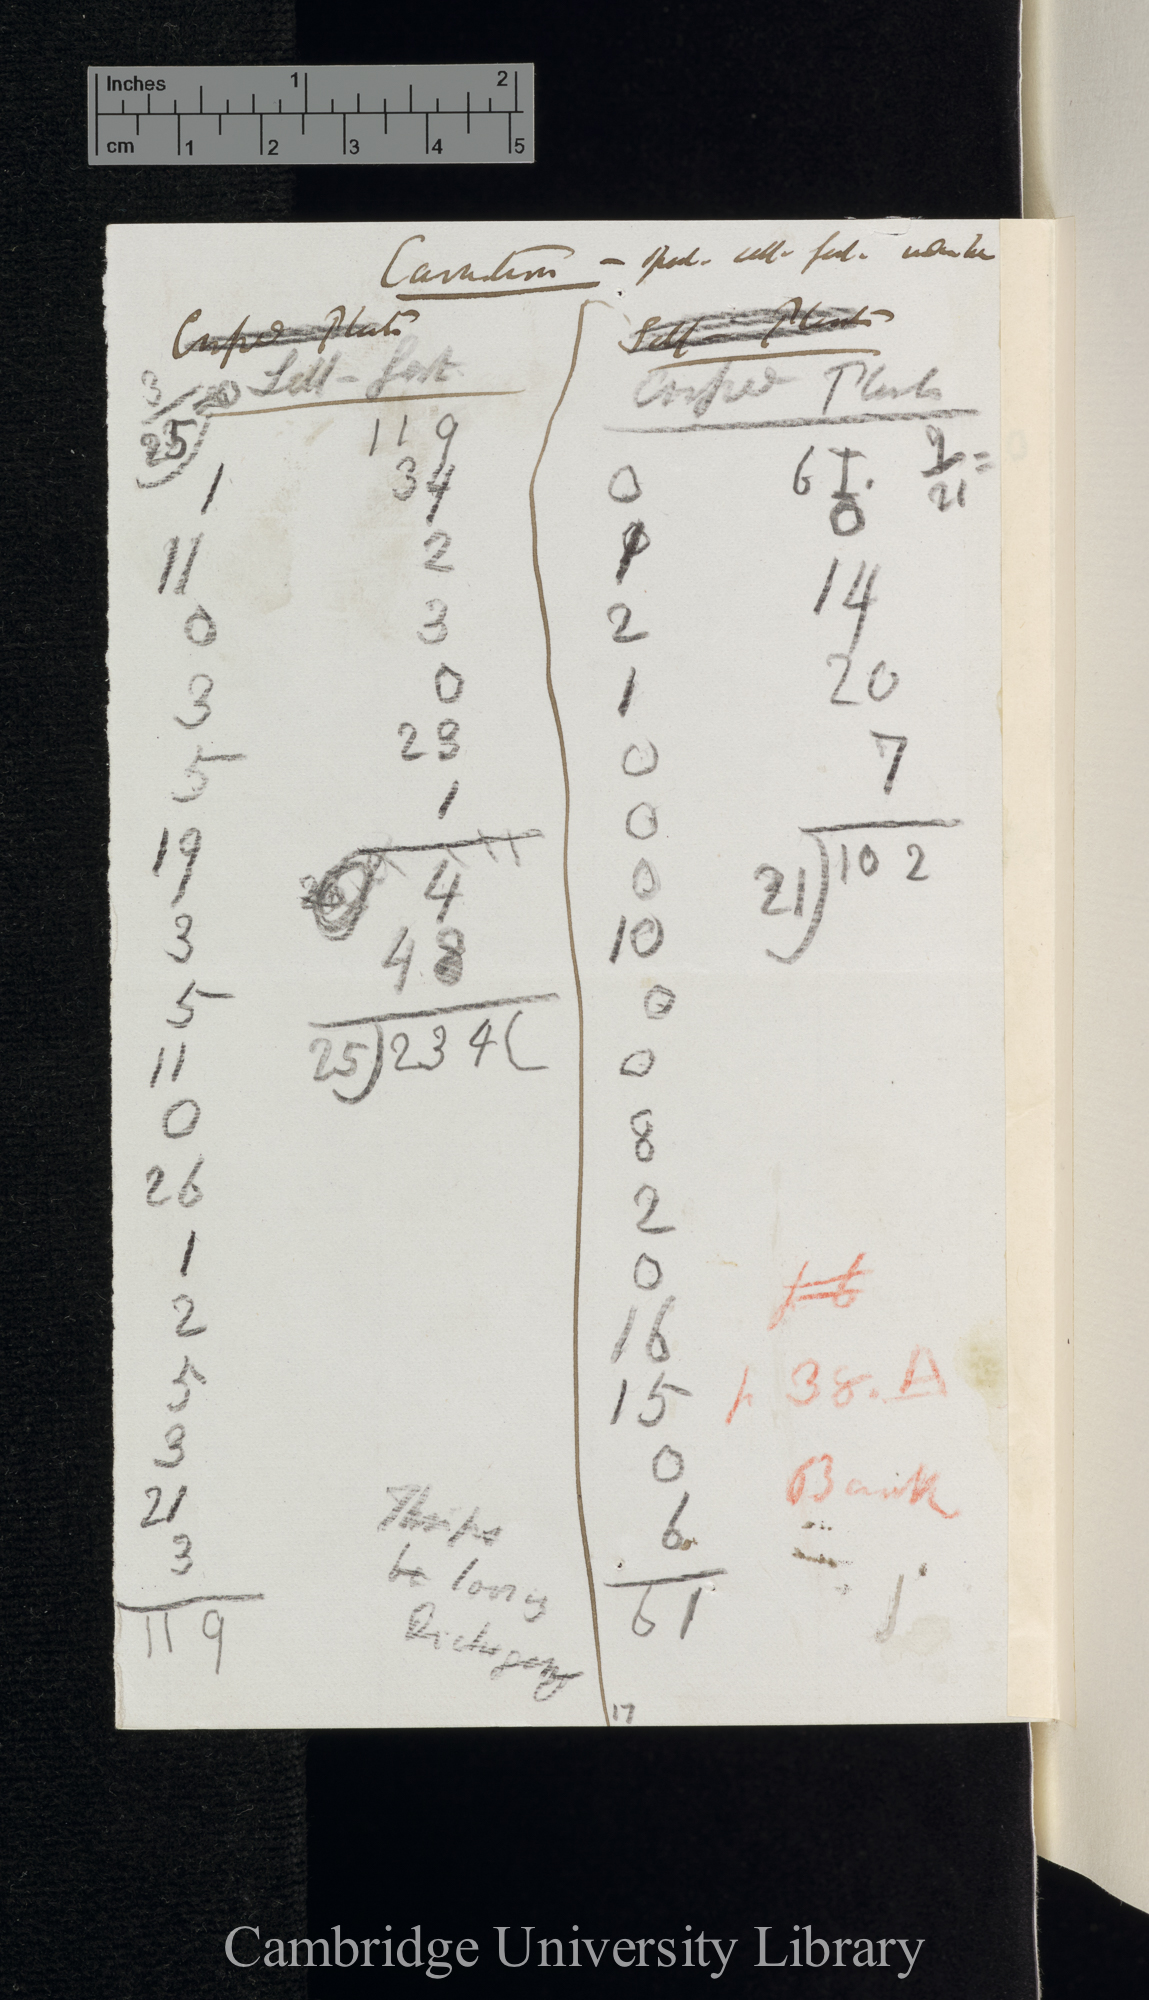 Inches 1 2
cm 1 2 3 4 5
Carnation - self- fert.
Crossed Plants
Self-fert
3/25
1
11
0
3
5
19
3
5
11
0
26
1
2
5
3
21
3
119
119
34
2
3
0
23
1
4
48
25)234(
Self- Plants
Crossed Plants
0
2
1
0
0
0
10
0
0
8
2
0
16
15
0
6
61
61.
0
14
20
7
21)102
9/21 =
p. 38. A
Bank
Thrips
17
Cambridge University Library